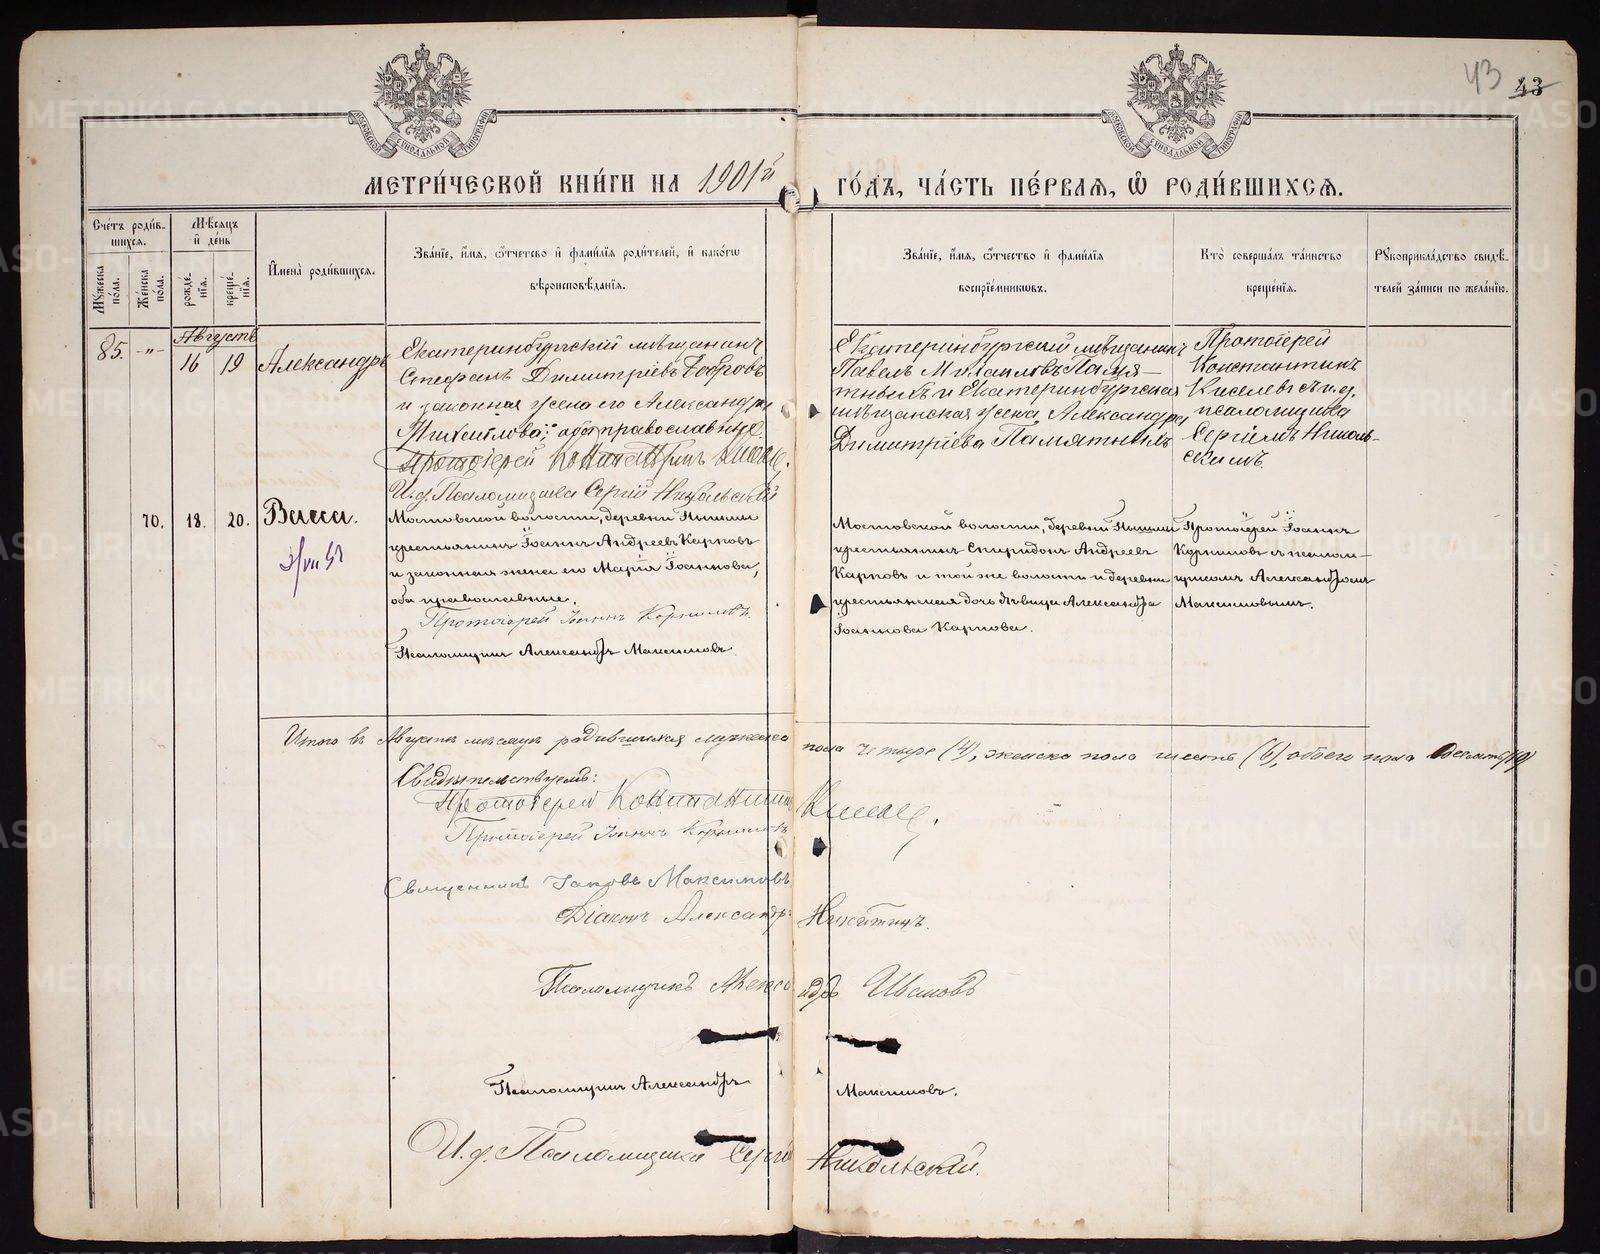 43 43
МОСКОВСКОЙ СѴНОДАЛЬНОЙ ТИПОГРАФІИ
МОСКОВСКОЙ СѴНОДАЛЬНОЙ ТИПОГРАФІИ
МЕТРИ́ЧЕСКОЙ КНИ́ГИ НА 1901й
ГО́ДЪ, ЧА́СТЬ ПЕ́РВАѦ, Ѽ РОДИ́ВШИХСѦ.
Сче́тъ роди́в-
шихсѧ.
Мѣ́сѧцъ
и҆ де́нь
Мꙋ́жеска
по́ла.
Же́нска
по́ла.
рожде́-
нїѧ.
креще́-
нїѧ.
И҆мена̀ роди́вшихсѧ.
Зва́нїе, и҆́мѧ, ѻ҆́тчество и҆ фами́лїѧ роди́телей, и҆ како́гѡ
вѣроисповѣ́данїѧ.
Зва́нїе, и҆́мѧ, ѻ҆́тчество и҆ фами́лїѧ
воспрїе́мникѡвъ.
Кто̀ соверша́лъ та́инство
креще́нїѧ.
Рꙋкоприкла́дство свидѣ́-
телей за́писи по жела́нїю.
Августъ
85. -"- 16 19 Александръ
Екатеринбургскій мѣщанинъ
Стефанъ Димитріевъ Бобровъ
и законная жена его Александра
Михеилова; оба православные.
Протоіерей Константинъ Киселе
И.д. Псаломщика Сергій Никольскій
Екатеринбургскій мѣщанинъ
Павелъ Михаиловъ Памя-
тныхъ и Екатеринбургская
мѣщанская жена Александра
Димитріева Памятныхъ
Протоіерей
Константинъ
Киселевъ съ и.д.
псаломщика
Сергіемъ Николь-
скимъ.
70. 18. 20. Васса.
Мостовской волости, деревни Пышмы
крестьянинъ Іоаннъ Андреевъ Карповъ
и законная жена его Марія Іоаннова,
оба православные.
Протоіерей Іоаннъ Корниловъ.
Псаломщикъ Александръ Максимовъ.
Мостовской волости, деревни Пышмы
крестьянинъ Спиридонъ Андреевъ
Карповъ и той же волости и деревни
крестьянская дочь дѣвица Александра
Іоаннова Карпова.
Протоіерей Іоаннъ
Корниловъ съ псалом-
щикомъ Александромъ
Максимовымъ.
Итого въ Августѣ мѣсяцѣ родившихся мужеска пола четыре (4), женска пола шесть (6), обоего пола
Свидѣтельствуемъ:
Протоіерей Константинъ Киселе
Протоіерей Іоаннъ Корниловъ
Священникъ Іаковъ Максимовъ
Діаконъ Александръ Никитинъ.
Псаломщикъ Александръ Ивановъ
Псаломщикъ Александръ Максимовъ.
И.д. Псаломщика Сергій Никольскій.
METRIKI.GASO-URAL.RU